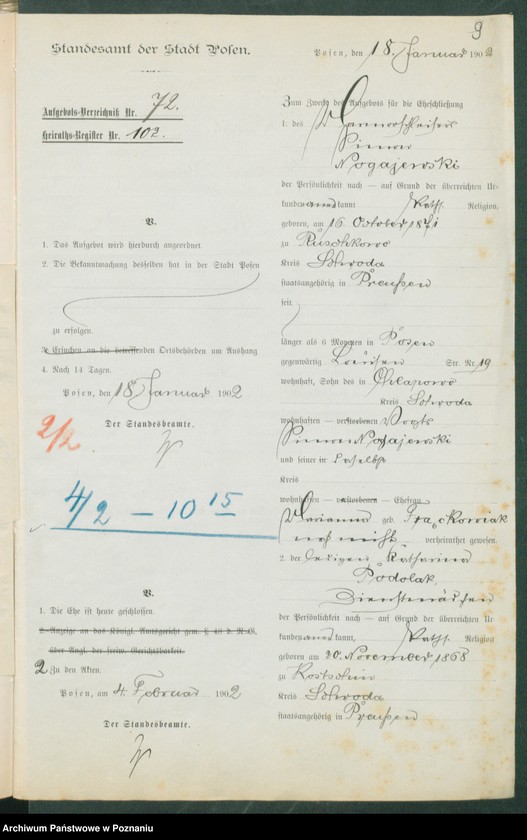 9
Standesamt der Stadt Posen.
Aufgebots-Verzeichniß Nr. 72.
Heiraths-Register Nr. 102.
V.
1. Das Aufgebot wird hierdurch angeordnet
2. Die Bekanntmachung desselben hat in der Stadt Posen
zu erfolgen.
3. Ersuchen an die betreffenden Ortsbehörden um Aushang
4. Nach 14 Tagen.
Posen, den 18 Januar 1902
Der Standesbeamte.
2/2
4/2 – 10 15
V.
1. Die Ehe ist heute geschlossen.
2. Anzeige an das Königl. Amtsgericht gem. § 48 d. R.-G.
über Angl. der freiw. Gerichtsbarkeit.
2 Zu den Akten.
Posen, am 4. Februar 1902
Der Standesbeamte.
Posen, den 18. Januar 1902
Zum Zweck des Aufgebots für die Eheschließung
1. des
Nogajewski
der Persönlichkeit nach — auf Grund der überreichten Ur-
kunden anerkannt Kath. Religion,
geboren, am 16. October 1871
zu Ruschkowo
Kreis Schroda
staatsangehörig in Preußen
seit
länger als 6 Monaten in Posen
gegenwärtig Str. Nr. 19
wohnhaft, Sohn des in Chlapowo
Kreis Schroda
wohnhaften — verstorbenen Vogts
Nogajewski
und seiner in daselbst
Kreis
wohnhaften — verstorbenen — Ehefrau
Marianna geb. Frąckowiak
noch nicht verheirathet gewesen.
2. der ledigen Katharina
Podolak,
Dienstmädchen
der Persönlichkeit nach — auf Grund der überreichten Ur-
kunden anerkannt, Kath. Religion
geboren am 20. November 1868
zu Kostschin
Kreis Schroda
staatsangehörig in Preußen
Archiwum Państwowe w Poznaniu
www.szukajwarchiwach.gov.pl